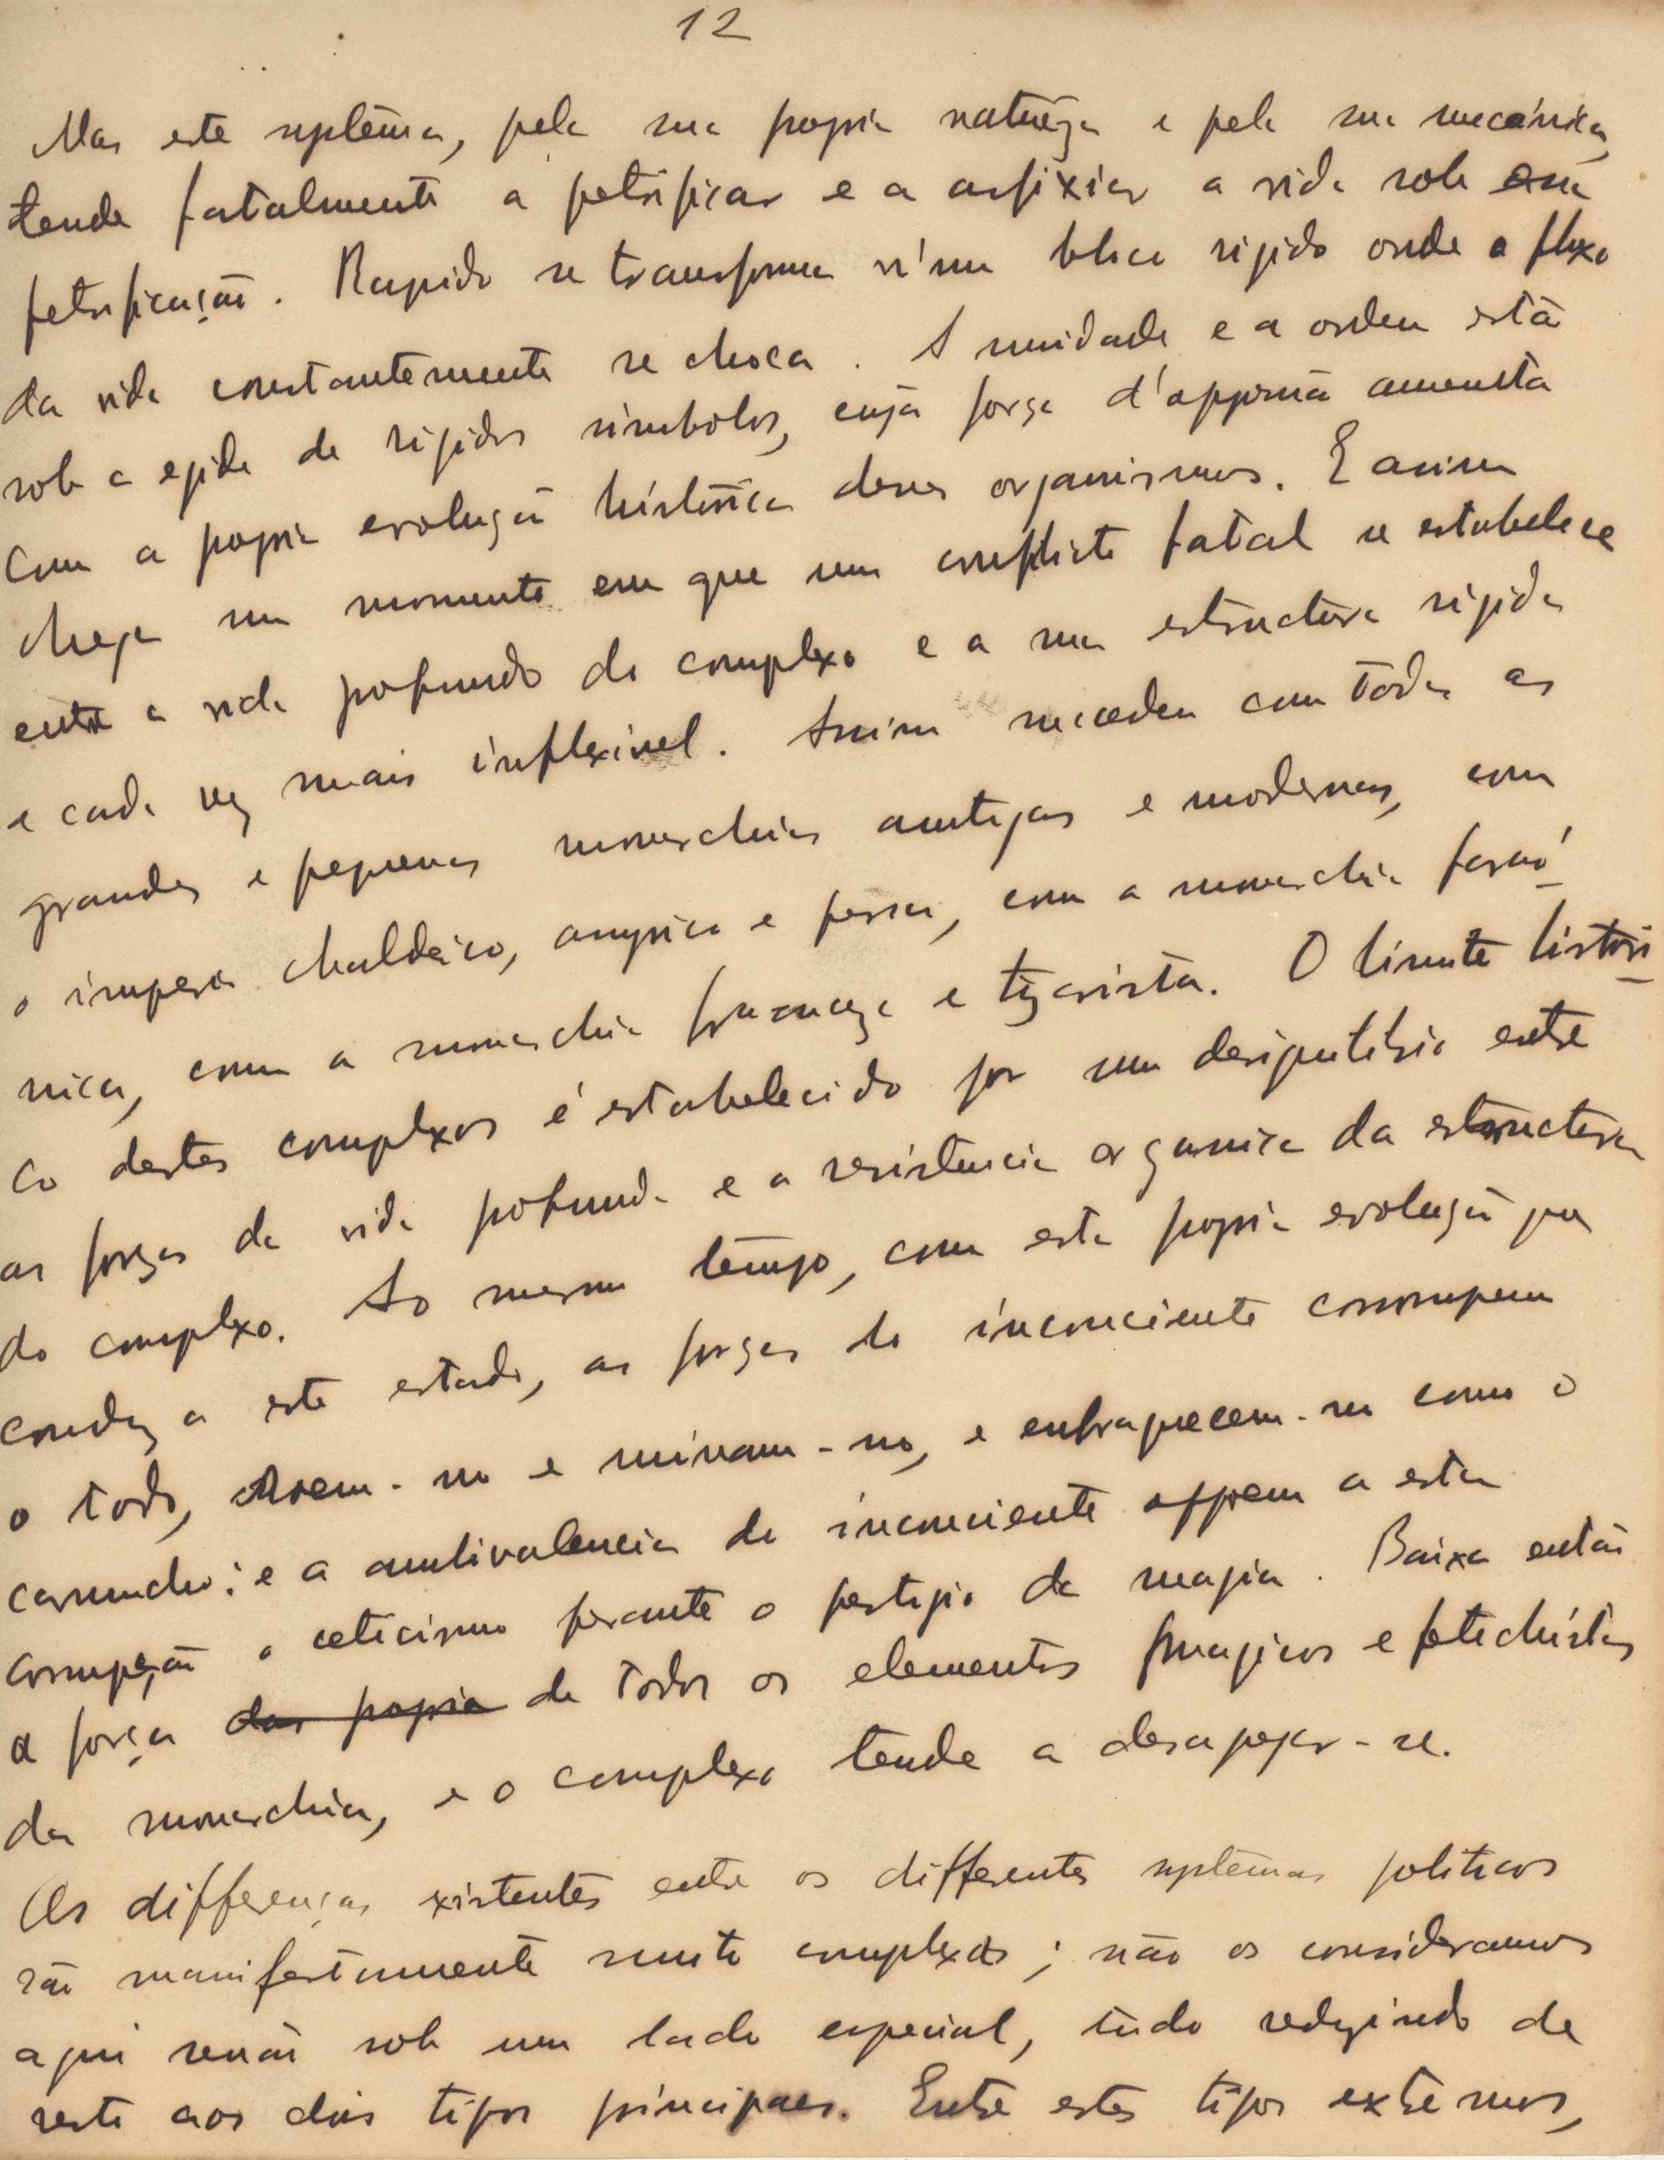 12
Mas este systema, pela sua propria natureza e pela sua mecánica,
tende fatalmente a petrificar e a asfixiar a vida sob essa
petrificação. Rapido se transforma n'um bloco rigido onde o fluxo
da vida constantemente se choca. A unidade e a ordem está
sob a egide de rigidos simbolos, cuja força d'oppressão aumenta
com a propria evolução histórica desses organismos. E assim
chega um momento em que um conflicto fatal se estabelece
entre a vida profunda do complexo e a sua estructura rigida
e cada vez mais inflexivel. Assim succedeu com todas as
grandes e pequenas monarchias antigas e modernas, com
o imperio chaldaico, assyrico e persa, com a monarchia faraó-
nica, com a monarchia franceza e tzarista. O limite histori-
co destes complexos é estabelecido por um desiquilibrio entre
as forças da vida profunda e a resistencia organica da estructura
do complexo. Ao mesmo tempo, com esta propria evolução que
conduz a este estado, as forças do inconsciente corrompem
o todo, roem-no e minam-no, e enfraquecem-no como o
caruncho: e a ambivalencia do inconsciente oppoem a esta
corrupção o ceticismo perante o prestigio da magia. Baixa então
a força das propria de todos os elementos magicos e fetichistas
da monarchia, e o complexo tende a desagregar-se.
As differenças existentes entre os differentes systemas politicos
são manifestamente muito complexas; não os consideramos
aqui senão sob um lado especial, tudo reduzindo de
resto aos dois tipos principaes. Entre estes tipos extremos,